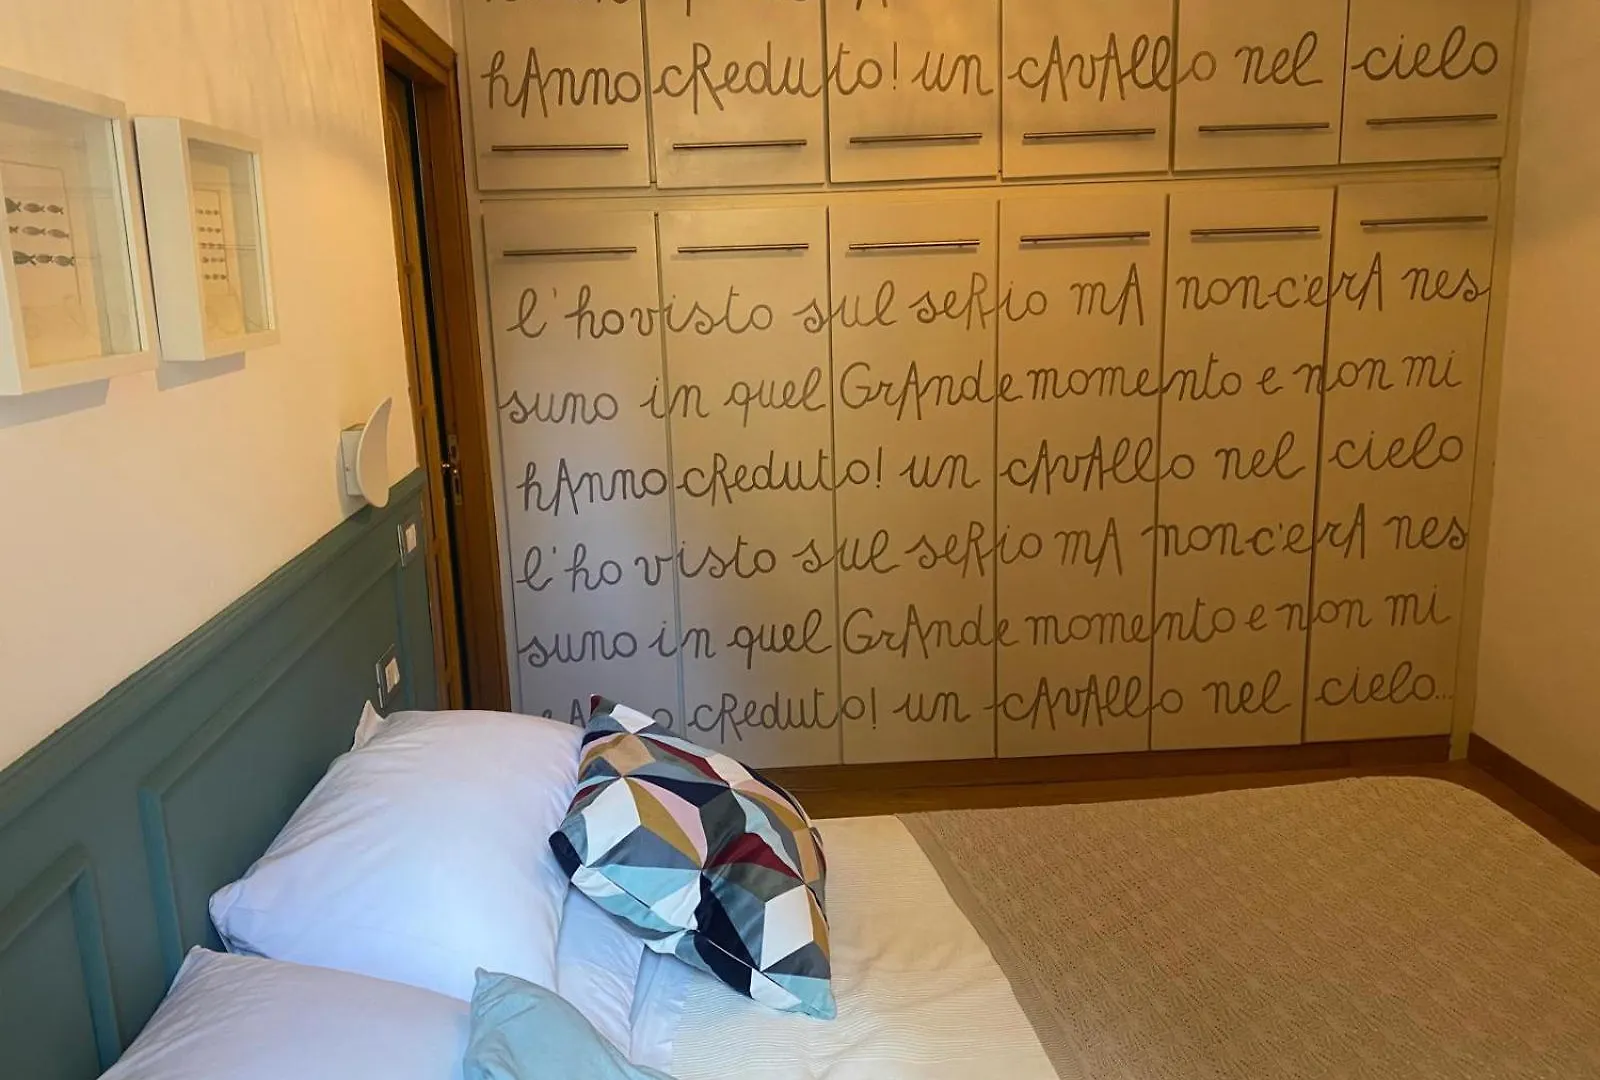 hAnno cReduto! un cAvAllo nel cielo
l'ho visto sul seRio mA non c'erA nes
suno in quel GrAnde momento e non mi
hAnno cReduto! un cAvAllo nel cielo
l'ho visto sul seRio mA non c'erA nes
suno in quel GrAnde momento e non mi
hAnno cReduto! un cAvAllo nel cielo...